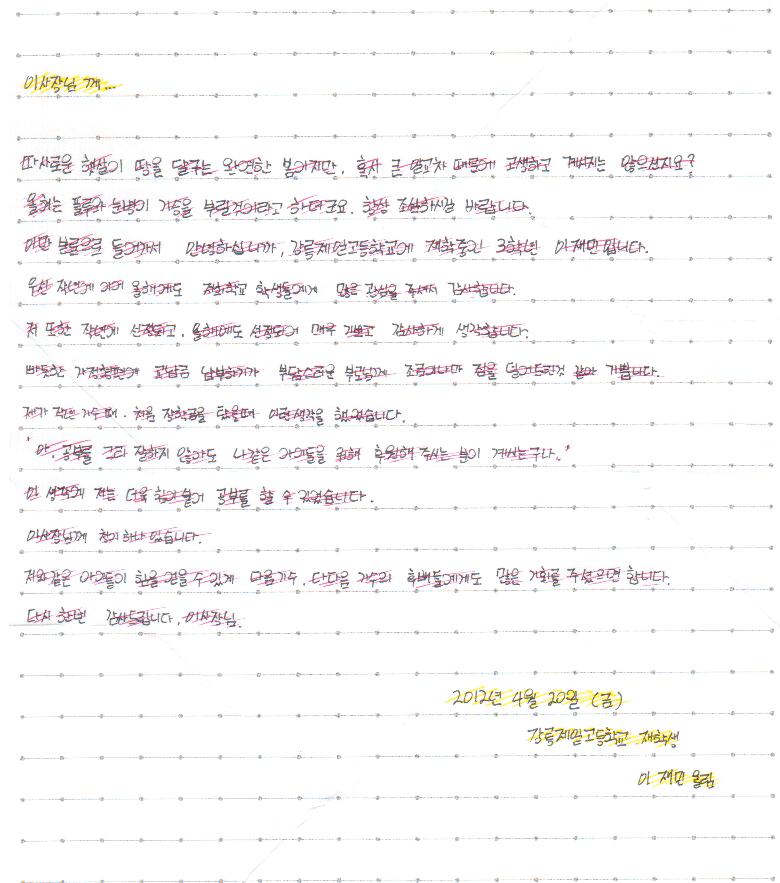 이사장님 께...
따사로운 햇살이 땅을 달구는 완연한 봄이지만, 혹시 큰 일교차 때문에 고생하고 계시지는 않으신지요?
올해는 플루와 눈병이 기승을 부릴것이라고 하더군요. 항상 조심하시길 바랍니다.
이만 본론으로 들어가서 안녕하십니까, 강릉제일고등학교에 재학중인 3학년 이재민입니다.
우선 작년에 이어 올해에도 저희학교 학생들에게 많은 관심을 주셔서 감사합니다.
저 또한 작년에 선정되고, 올해에도 선정되어 매우 기쁘고 감사하게 생각합니다.
빠듯한 가정형편에 교납금 납부하기가 부담스러운 부모님께 조금이나마 짐을 덜어드린것 같아 기쁩니다.
제가 작은 기수때, 처음 장학금을 탔을때 이런생각을 했었습니다.
'아, 공부를 그리 잘하지 않아도 나같은 아이들을 위해 후원해 주시는 분이 계시는구나.'
이 생각에 저는 더욱 힘이붙어 공부를 할 수 있었습니다.
이사장님께 청이 하나 있습니다.
저와같은 아이들이 힘을 얻을 수 있게 다음기수, 다다음 기수의 후배들에게도 많은 기회를 주셨으면 합니다.
다시 한번 감사드립니다, 이사장님.
2012년 4월 20일 (금)
강릉제일고등학교 재학생
이 재민 올림